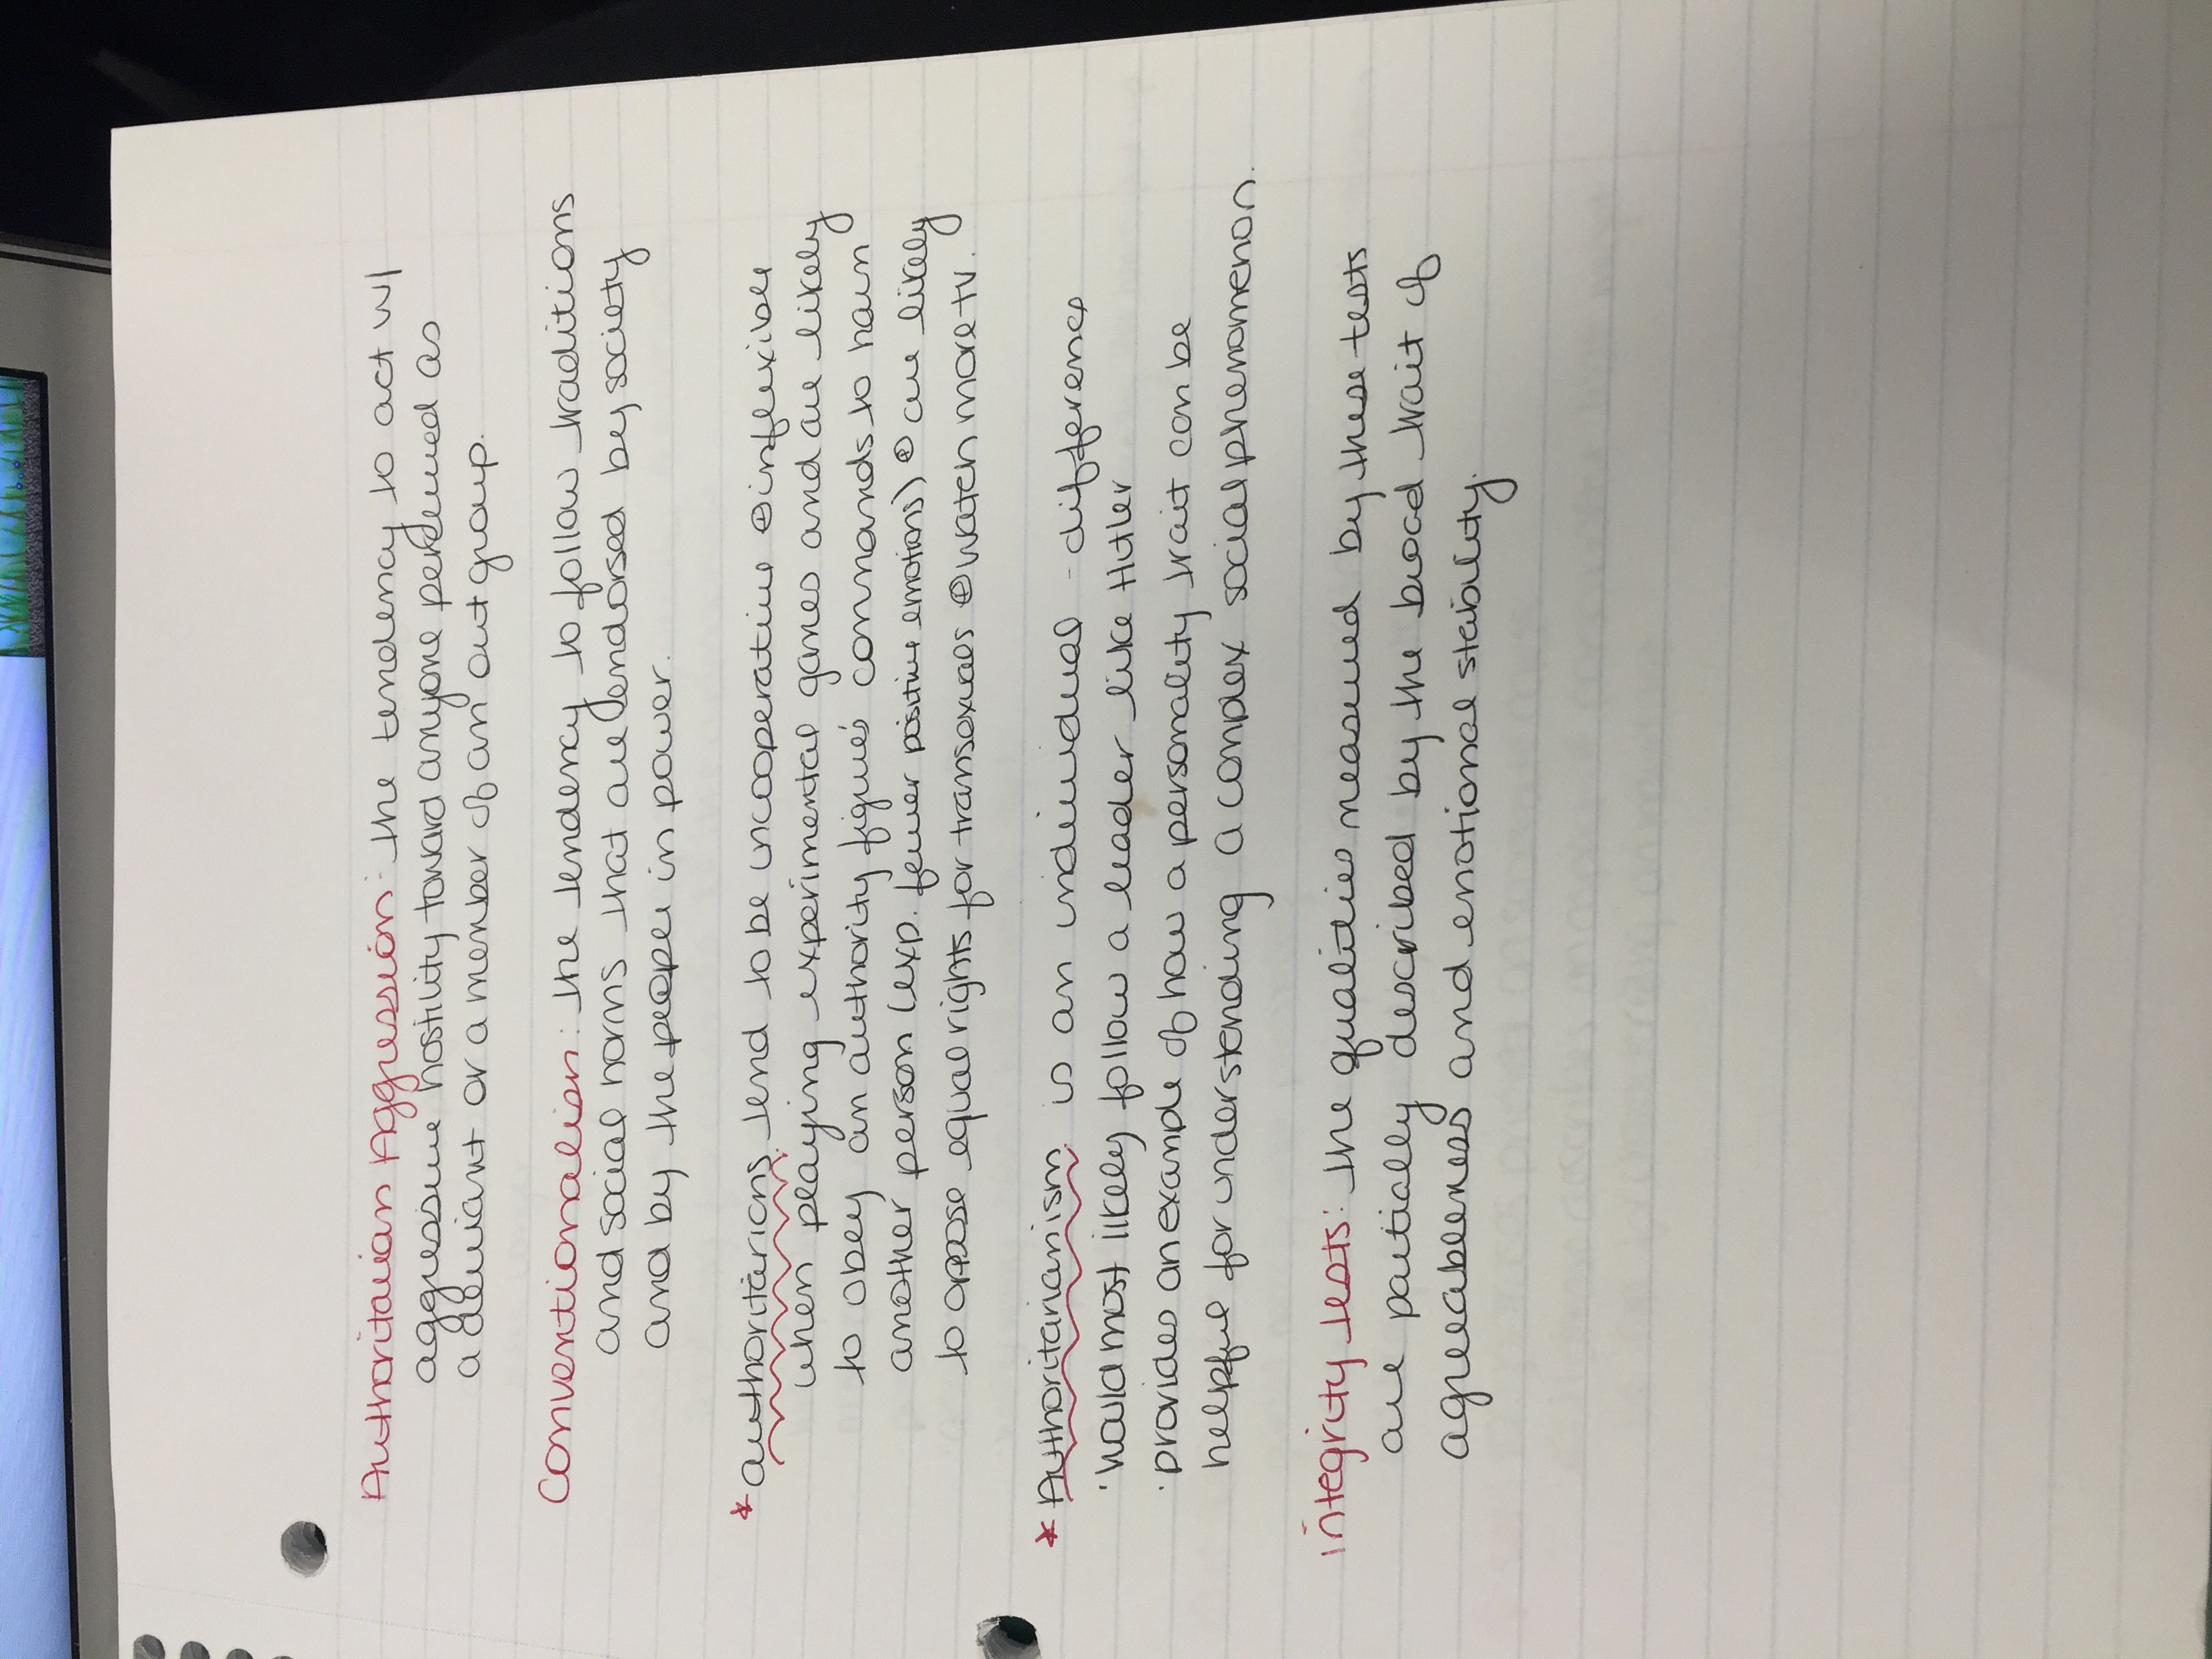 Authoritarian Aggression: the tendency to act w/
aggressive hostility toward anyone perceived as
a deviant or a member of an out group.
Conventionalism: the tendency to follow traditions
and social norms that are endorsed by society
and by the people in power.
* authoritarians tend to be uncooperative ⊕ inflexible
when playing experimental games and are likely
to obey an authority figure's commands to harm
another person (exp. fewer positive emotions) ⊕ are likely
to oppose equal rights for transexuals ⊕ watch more tv.
* Authoritarianism is an individual - difference
· would most likely follow a leader like Hitler
· provides an example of how a personality trait can be
helpful for understanding a complex social phenomenon.
integrity tests: the qualities measured by these tests
are partially described by the broad trait of
agreeableness and emotional stability.